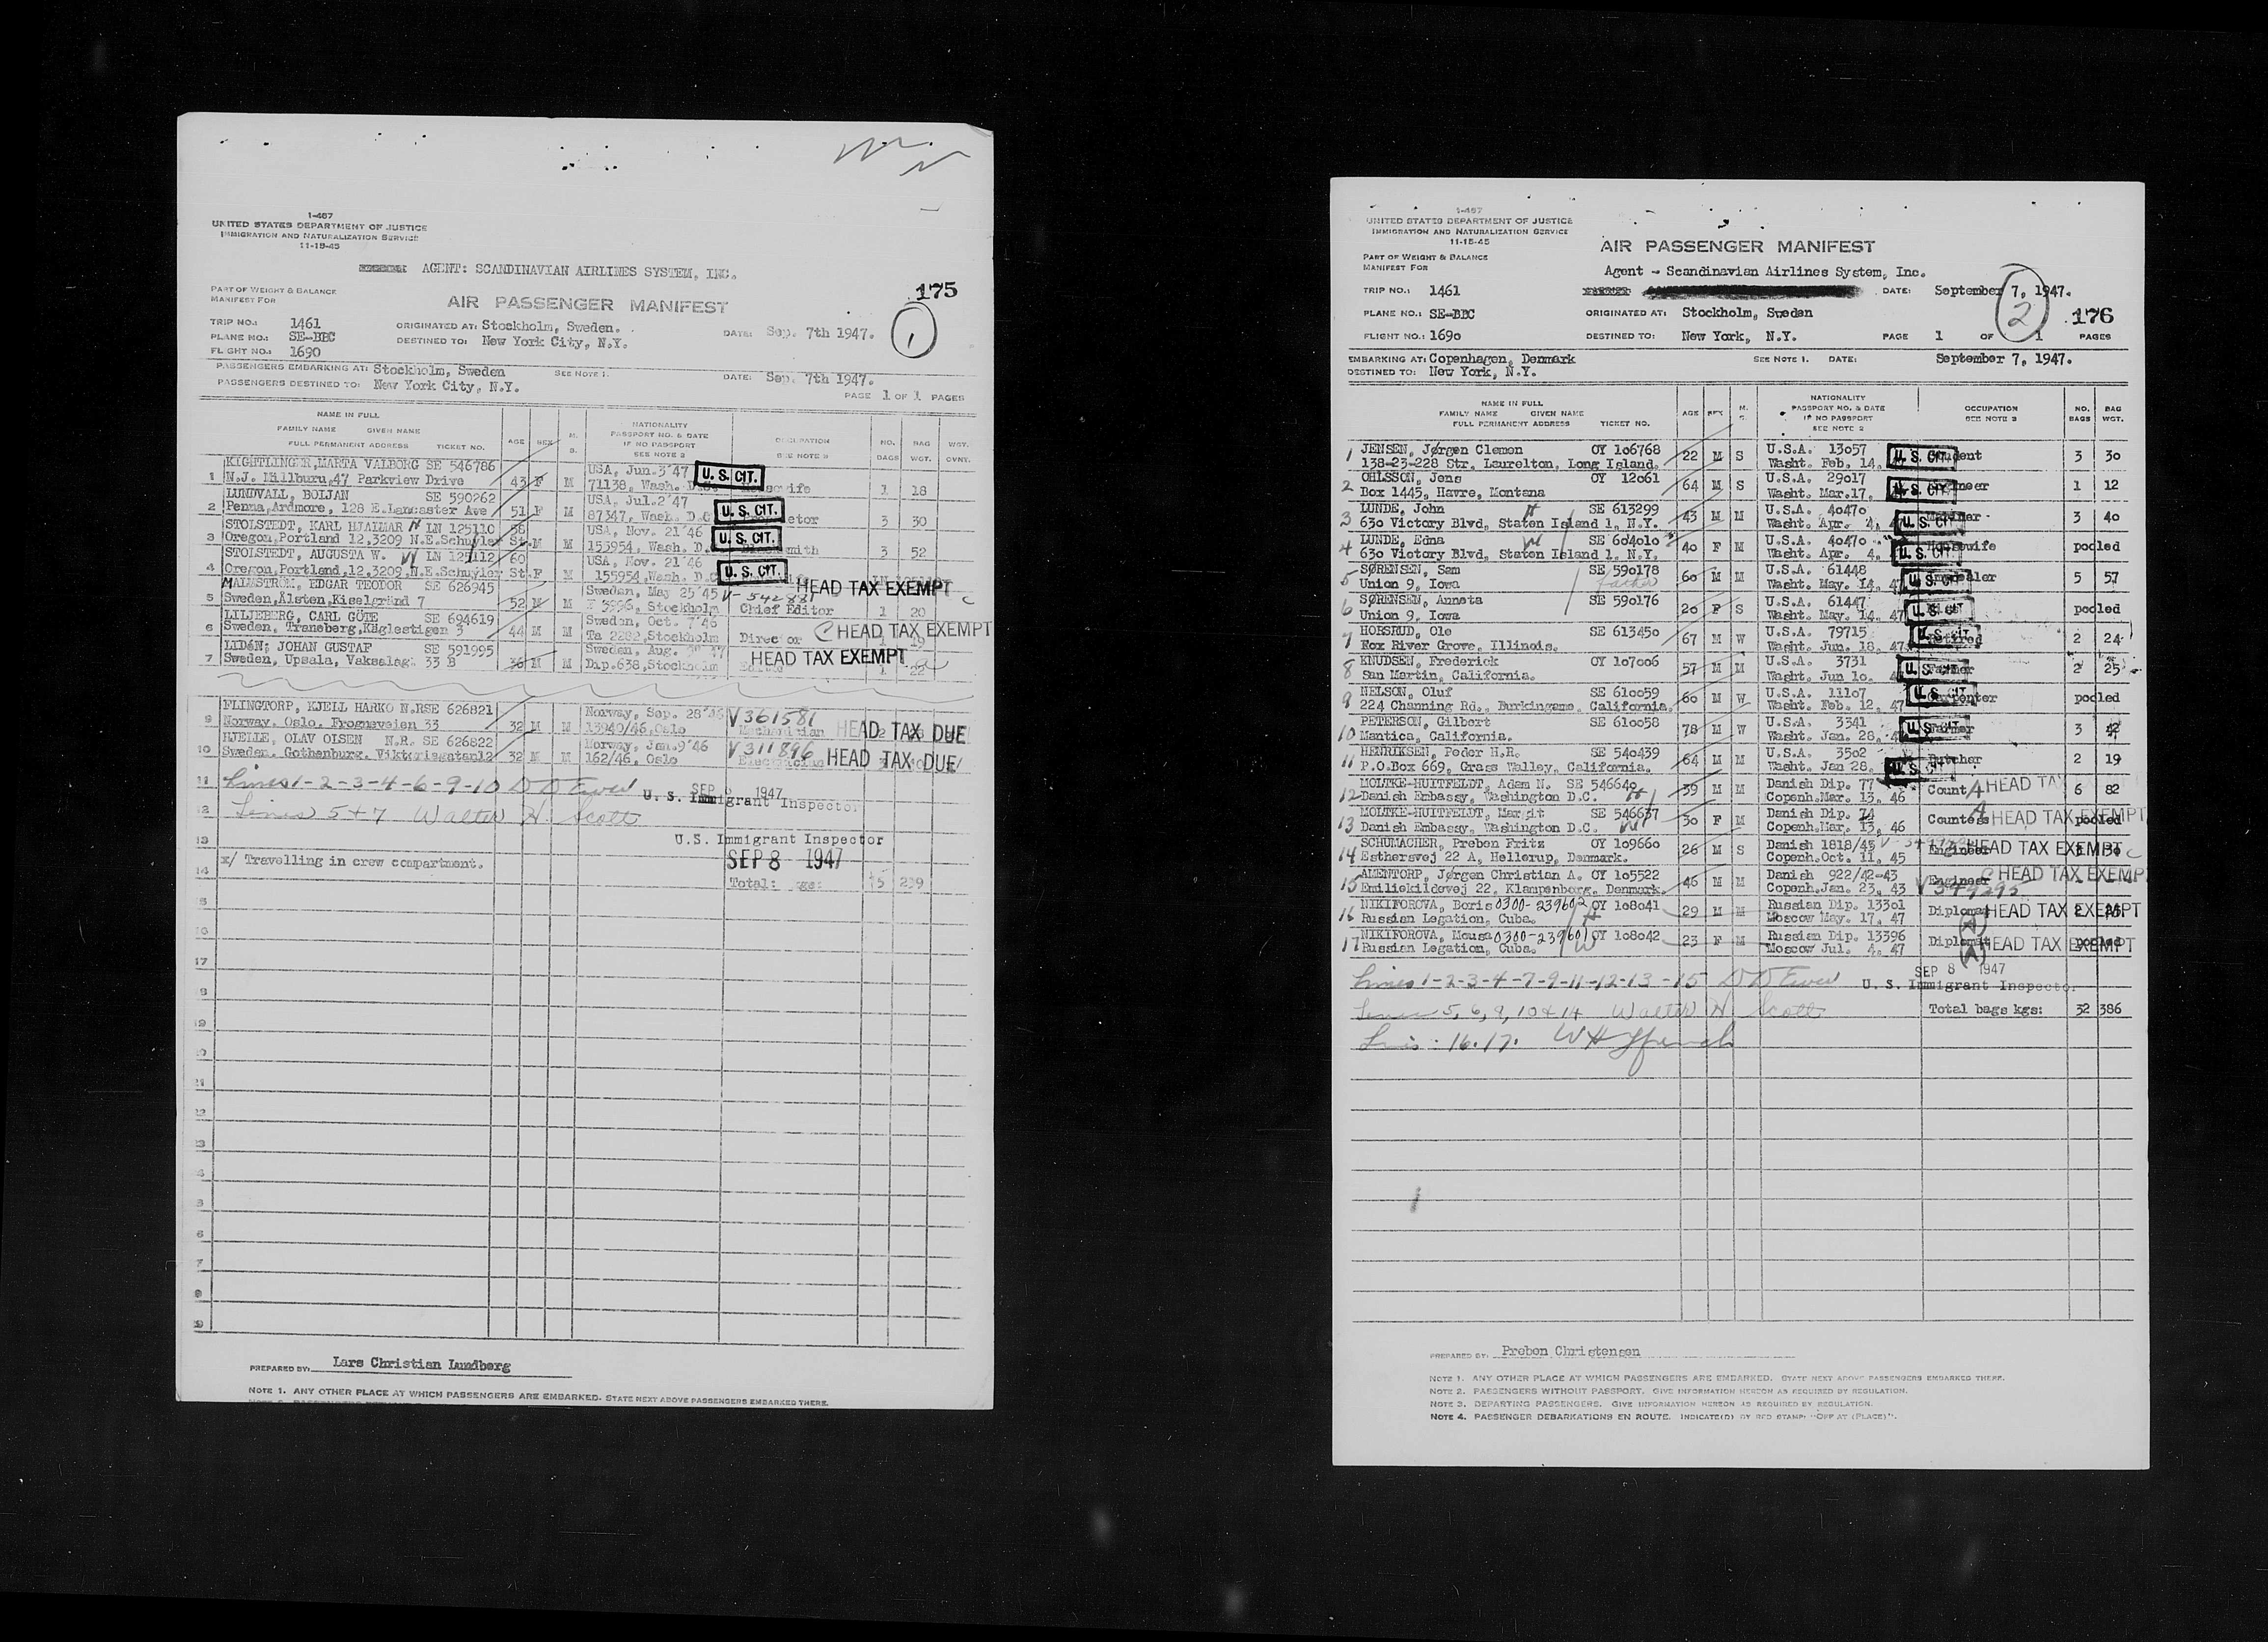 1-467
UNITED STATES DEPARTMENT OF JUSTICE
IMMIGRATION AND NATURALIZATION SERVICE
11-15-45
AGENT: SCANDINAVIAN AIRLINES SYSTEM, INC.
175
PART OF WEIGHT & BALANCE
MANIFEST FOR
AIR PASSENGER MANIFEST
1
TRIP NO.: 1461 ORIGINATED AT: Stockholm, Sweden. DATE: Sep. 7th 1947.
PLANE NO.: SE-BBC DESTINED TO: New York City, N.Y.
FLIGHT NO.: 1690
PASSENGERS EMBARKING AT: Stockholm, Sweden SEE NOTE 1. DATE: Sep. 7th 1947.
PASSENGERS DESTINED TO: New York City, N.Y.
PAGE 1 OF 1 PAGES
NAME IN FULL
FAMILY NAME GIVEN NAME
FULL PERMANENT ADDRESS TICKET NO.
AGE SEX M. S.
NATIONALITY
PASSPORT NO. & DATE
IF NO PASSPORT
SEE NOTE 2
OCCUPATION
SEE NOTE 3
NO. BAGS BAG WGT. WGT. OVNT.
KIGHTLINGER, MARTA VALBORG SE 546786 USA, Jun.3'47 U.S. CIT.
1 N.J. Millburu,47 Parkview Drive 43 F M 71138, Wash. 1 18
LUNDVALL, BOLJAN SE 590262 USA, Jul.2'47 U.S. CIT.
2 Penna,Ardmore, 128 E.Lancaster Ave 51 F M 87347, Wash. D.C 3 30
STOLSTEDT, KARL HJALMAR LN 125110 58 USA, Nov. 21'46 U.S. CIT.
3 Oregon,Portland 12,3209 N.E.Schuyler St. M M 153954, Wash. D. 3 52
STOLSTEDT, AUGUSTA W. LN 125112 60 USA, Nov. 21'46 U.S. CIT.
4 Oregon,Portland,12,3209 N.E.Schuyler St. F M 155954,Wash. D.C
MALMSTRÖM, EDGAR TEODOR SE 626945 Sweden, May 25'45 V-542881 HEAD TAX EXEMPT
5 Sweden,Älsten,Kiselgränd 7 52 M M 3956, Stockholm Chief Editor 1 20
LILJEBERG, CARL GÖTE SE 694619 Sweden, Oct. 7'46 C HEAD TAX EXEMPT
6 Sweden, Traneberg,Käglestigen 3 44 M M Ta 2282,Stockholm Director 1 19
LIDÉN, JOHAN GUSTAF SE 591995 Sweden, Aug. HEAD TAX EXEMPT
7 Sweden, Upsala, Vaksalag. 33 B 36 M M Dip.638,Stockholm 1 22
FLINGTORP, KJELL HARKO N.RSE 626821 Norway, Sep. 28'46 V361581 HEAD TAX DUE
9 Norway, Oslo. Frognsveien 33 32 M M 13940/46,Oslo
HJELLE, OLAV OLSEN N.R. SE 626822 Norway, Jan.9'46 V311896 HEAD TAX DUE
10 Sweden. Gothenburg. Viktoriagatan12 32 M M 162/46, Oslo
11 Lines 1-2-3-4-6-9-10 SEP 1947
U. S. Immigrant Inspector
12 Lines 5+7 Walter H. Scott
13 U. S. Immigrant Inspector
x/ Travelling in crew compartment. SEP 8 1947
14 Total: 239
PREPARED BY: Lars Christian Lundberg
NOTE 1. ANY OTHER PLACE AT WHICH PASSENGERS ARE EMBARKED. STATE NEXT ABOVE PASSENGERS EMBARKED THERE.
1-467
UNITED STATES DEPARTMENT OF JUSTICE
IMMIGRATION AND NATURALIZATION SERVICE
11-15-45
AIR PASSENGER MANIFEST
PART OF WEIGHT & BALANCE
MANIFEST FOR
Agent - Scandinavian Airlines System, Inc.
TRIP NO.: 1461 DATE: September 7, 1947.
2
176
PLANE NO.: SE-BBC ORIGINATED AT: Stockholm, Sweden
FLIGHT NO.: 1690 DESTINED TO: New York, N.Y. PAGE 1 OF 1 PAGES
EMBARKING AT: Copenhagen, Denmark SEE NOTE 1. DATE: September 7, 1947.
DESTINED TO: New York, N.Y.
NAME IN FULL
FAMILY NAME GIVEN NAME
FULL PERMANENT ADDRESS TICKET NO.
AGE SEX M. S.
NATIONALITY
PASSPORT NO. & DATE
IF NO PASSPORT
SEE NOTE 2
OCCUPATION
SEE NOTE 3
NO. BAGS BAG WGT.
1 JENSEN, Jørgen Clemon OY 106768 22 M S U.S.A. 13057 U.S. CIT. Student 3 30
138-23-228 Str. Laurelton, Long Island. Washt. Feb. 14.
2 OHLSSON, Jens OY 12061 64 M S U.S.A. 29017 U.S. CIT. 1 12
Box 1445, Havre, Montana Washt. Mar.17.
3 LUNDE, John SE 613299 43 M M U.S.A. 40470 U.S. CIT 3 40
630 Victory Blvd, Staten Island 1, N.Y. Washt. Apr. 4. 47
4 LUNDE, Edna SE 604010 40 F M U.S.A. 40470 U.S. CIT Housewife pooled
630 Victory Blvd, Staten Island 1. N.Y. Washt. Apr. 4.
5 SØRENSEN, Sam SE 590178 60 M M U.S.A. 61448 U.S. CI 5 57
Union 9, Iowa father Washt. May. 14. 47
6 SØRENSEN, Anneta SE 590176 20 F S U.S.A. 61447 U.S. pooled
Union 9, Iowa Washt. May. 14. 47
7 HORSRUD, Ole SE 613450 67 M W U.S.A. 79715 U.S. CIT. Retired 2 24
Fox River Grove, Illinois. Washt. Jun. 18. 47
8 KNUDSEN, Frederick OY 107006 57 M M U.S.A. 3731 U.S. Farmer 2 25
San Martin, California. Washt. Jun 10.
9 NELSON, Oluf SE 610059 60 M W U.S.A. 11107 U.S. CIT Carpenter pooled
224 Channing Rd., Burkingame, California. Washt. Feb. 12. 47
10 PETERSON, Gilbert SE 610058 78 M W U.S.A. 3341 U.S. Farmer 3 42
Mantica, California. Washt. Jan. 28.
11 HENRIKSEN, Peder H.R. SE 540439 64 M M U.S.A. 3502 U.S. CIT Butcher 2 19
P.O.Box 669, Grass Valley, California. Washt. Jan 28.
12 MOLTKE-HUITFELDT, Adam N. SE 546640 39 M M Danish Dip. 77 Count A HEAD TA 6 82
Danish Embassy, Washington D.C. Copenh.Mar. 13. 46
13 MOLTKE-HUITFELDT, Margit SE 546637 30 F M Danish Dip. 74 Countess A HEAD TAX EXEMPT pooled
Danish Embassy, Washington D.C. Copenh.Mar. 13, 46
14 SCHUMACHER, Preben Fritz OY 109660 26 M S Danish 1818/45 Engineer HEAD TAX EXEMPT
Esthersvej 22 A, Hellerup, Denmark. Copenh.Oct. 11. 45
15 AMENTORP, Jørgen Christian A. OY 105522 46 M M Danish 922/42-43 Engineer C HEAD TAX EXEMP
Emiliekildevej 22, Klampenborg. Denmark. Copenh.Jan. 23, 43 V349295
16 NIKIFOROVA, Boris 0300-239602 OY 108041 29 M M Russian Dip. 13301 Diplomat HEAD TAX EXEMPT
Russian Legation, Cuba. Moscow May. 17, 47 (A)
17 NIKIFOROVA, Mousa 0300-239601 OY 108042 23 F M Russian Dip. 13396 Diplomat HEAD TAX EXEMPT
Russian Legation, Cuba. Moscow Jul. 4. 47 (A)
Lines 1-2-3-4-7-9-11-12-13-15 SEP 8 1947
U. S. Immigrant Inspector
Lines 5, 6, 8, 10 & 14 Walter H. Scott Total bags kgs: 32 386
Lines: 16.17.
PREPARED BY: Preben Christensen
NOTE 1. ANY OTHER PLACE AT WHICH PASSENGERS ARE EMBARKED. STATE NEXT ABOVE PASSENGERS EMBARKED THERE.
NOTE 2. PASSENGERS WITHOUT PASSPORT. GIVE INFORMATION HEREON AS REQUIRED BY REGULATION.
NOTE 3. DEPARTING PASSENGERS. GIVE INFORMATION HEREON AS REQUIRED BY REGULATION.
NOTE 4. PASSENGER DEBARKATIONS EN ROUTE. INDICATE(D) BY RED STAMP: "OFF AT (PLACE)".